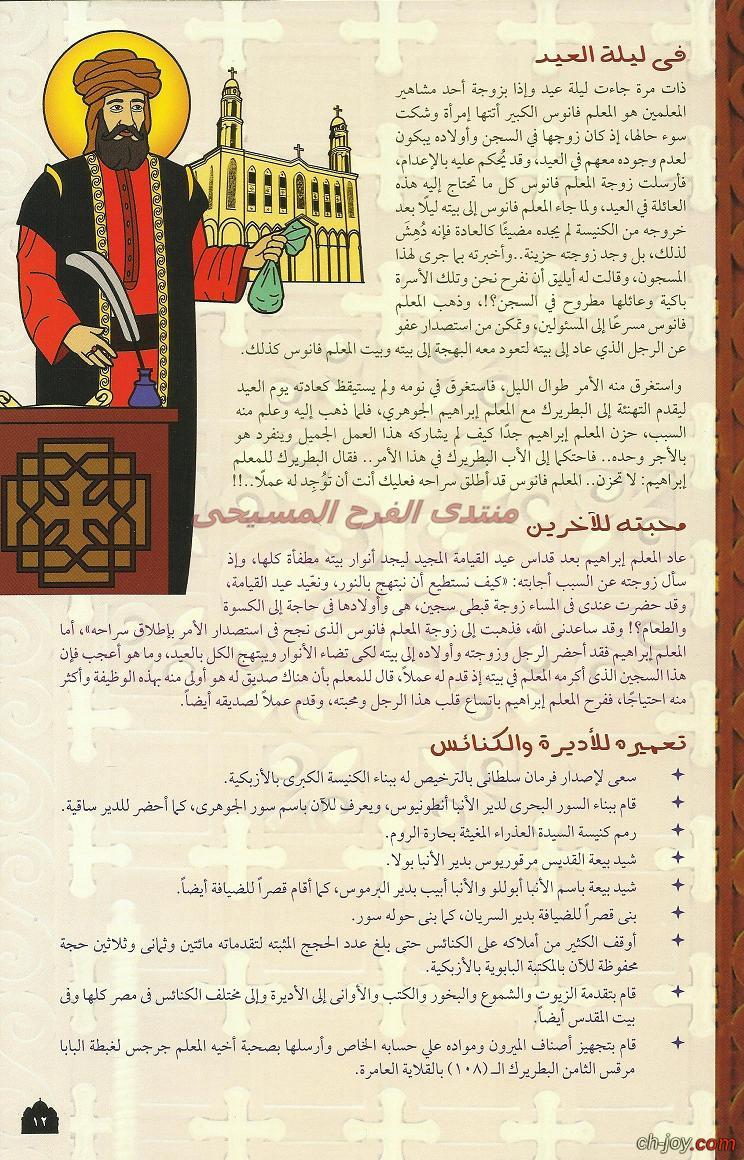 فى ليلة العيد
ذات مرة جاءت ليلة عيد وإذا بزوجة أحد مشاهير
المعلمين هو المعلم فانوس الكبير أتتها إمرأة وشكت
سوء حالها، إذ كان زوجها في السجن وأولاده يبكون
لعدم وجوده معهم في العيد، وقد يُحكم عليه بالإعدام،
فأرسلت زوجة المعلم فانوس كل ما تحتاج إليه هذه
العائلة في العيد، ولما جاء المعلم فانوس إلى بيته ليلًا بعد
خروجه من الكنيسة لم يجده مضيئًا كالعادة فإنه دُهِشَ
لذلك، بل وجد زوجته حزينة..وأخبرته بما جرى لهذا
المسجون، وقالت له أيليق أن نفرح نحن وتلك الأسرة
باكية وعائلها مطروح في السجن؟!، وذهب المعلم
فانوس مسرعًا إلى المسئولين، وتمكن من استصدار عفو
عن الرجل الذي عاد إلى بيته لتعود معه البهجة إلى بيته وبيت المعلم فانوس كذلك.
واستغرق منه الأمر طوال الليل، فاستغرق في نومه ولم يستيقظ كعادته يوم العيد
ليقدم التهنئة إلى البطريرك مع المعلم إبراهيم الجوهري، فلما ذهب إليه وعلم منه
السبب، حزن المعلم إبراهيم جدًا كيف لم يشاركه هذا العمل الجميل وينفرد هو
بالأجر وحده.. فاحتكما إلى الأب البطريرك في هذا الأمر.. فقال البطريرك للمعلم
إبراهيم: لا تحزن.. المعلم فانوس قد أطلق سراحه فعليك أنت أن تُوجِد له عملًا..!!
منتدى الفرح المسيحى
محبته للآخرين
عاد المعلم إبراهيم بعد قداس عيد القيامة المجيد ليجد أنوار بيته مطفأة كلها، وإذ
سأل زوجته عن السبب أجابته: «كيف نستطيع أن نبتهج بالنور، ونعّيد عيد القيامة،
وقد حضرت عندى فى المساء زوجة قبطى سجين، هى وأولادها فى حاجة إلى الكسوة
والطعام؟! وقد ساعدنى الله، فذهبت إلى زوجة المعلم فانوس الذى نجح في استصدار الأمر بإطلاق سراحه»، أما
المعلم إبراهيم فقد أحضر الرجل وزوجته وأولاده إلى بيته لكى تضاء الأنوار ويبتهج الكل بالعيد، وما هو أعجب فإن
هذا السجين الذى أكرمه المعلم في بيته إذ قدم له عملاً، قال للمعلم بأن هناك صديق له هو أولى منه بهذه الوظيفة وأكثر
منه احتياجًا، ففرح المعلم إبراهيم باتساع قلب هذا الرجل ومحبته، وقدم عملاً لصديقه أيضاً.
تعميره للأديرة والكنائس
سعى لإصدار فرمان سلطانى بالترخيص له ببناء الكنيسة الكبرى بالأزبكية.
قام ببناء السور البحرى لدير الأنبا أنطونيوس، ويعرف للآن باسم سور الجوهرى، كما أحضر للدير ساقية.
رمم كنيسة السيدة العذراء المغيثة بحارة الروم.
شيد بيعة القديس مرقوريوس بدير الأنبا بولا.
شيد بيعة باسم الأنبا أبوللو والأنبا أبيب بدير البرموس، كما أقام قصراً للضيافة أيضاً.
بنى قصراً للضيافة بدير السريان، كما بنى حوله سور.
أوقف الكثير من أملاكه على الكنائس حتى بلغ عدد الحجج المثبته لتقدماته مائتين وثمانى وثلاثين حجة
محفوظة للآن بالمكتبة البابوية بالأزبكية.
قام بتقدمة الزيوت والشموع والبخور والكتب والأوانى إلى الأديرة وإلى مختلف الكنائس فى مصر كلها وفى
بيت المقدس أيضاً.
قام بتجهيز أصناف الميرون ومواده علي حسابه الخاص وأرسلها بصحبة أخيه المعلم جرجس لغبطة البابا
مرقس الثامن البطريرك الـ (١٠٨) بالقلاية العامرة.
١٢
ch-joy.com